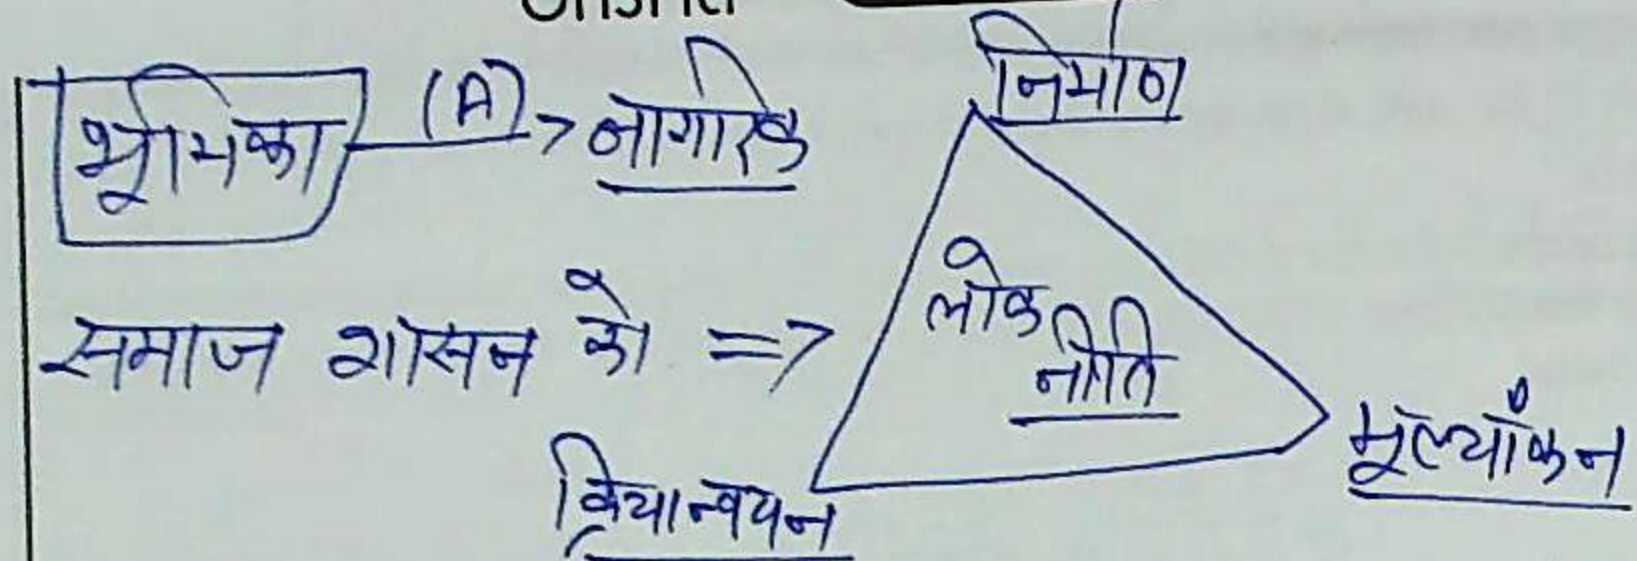 भूमिका (A) > नागरिक
निर्माण
समाज शासन को => लोक नीति
क्रियान्वयन
मूल्यांकन